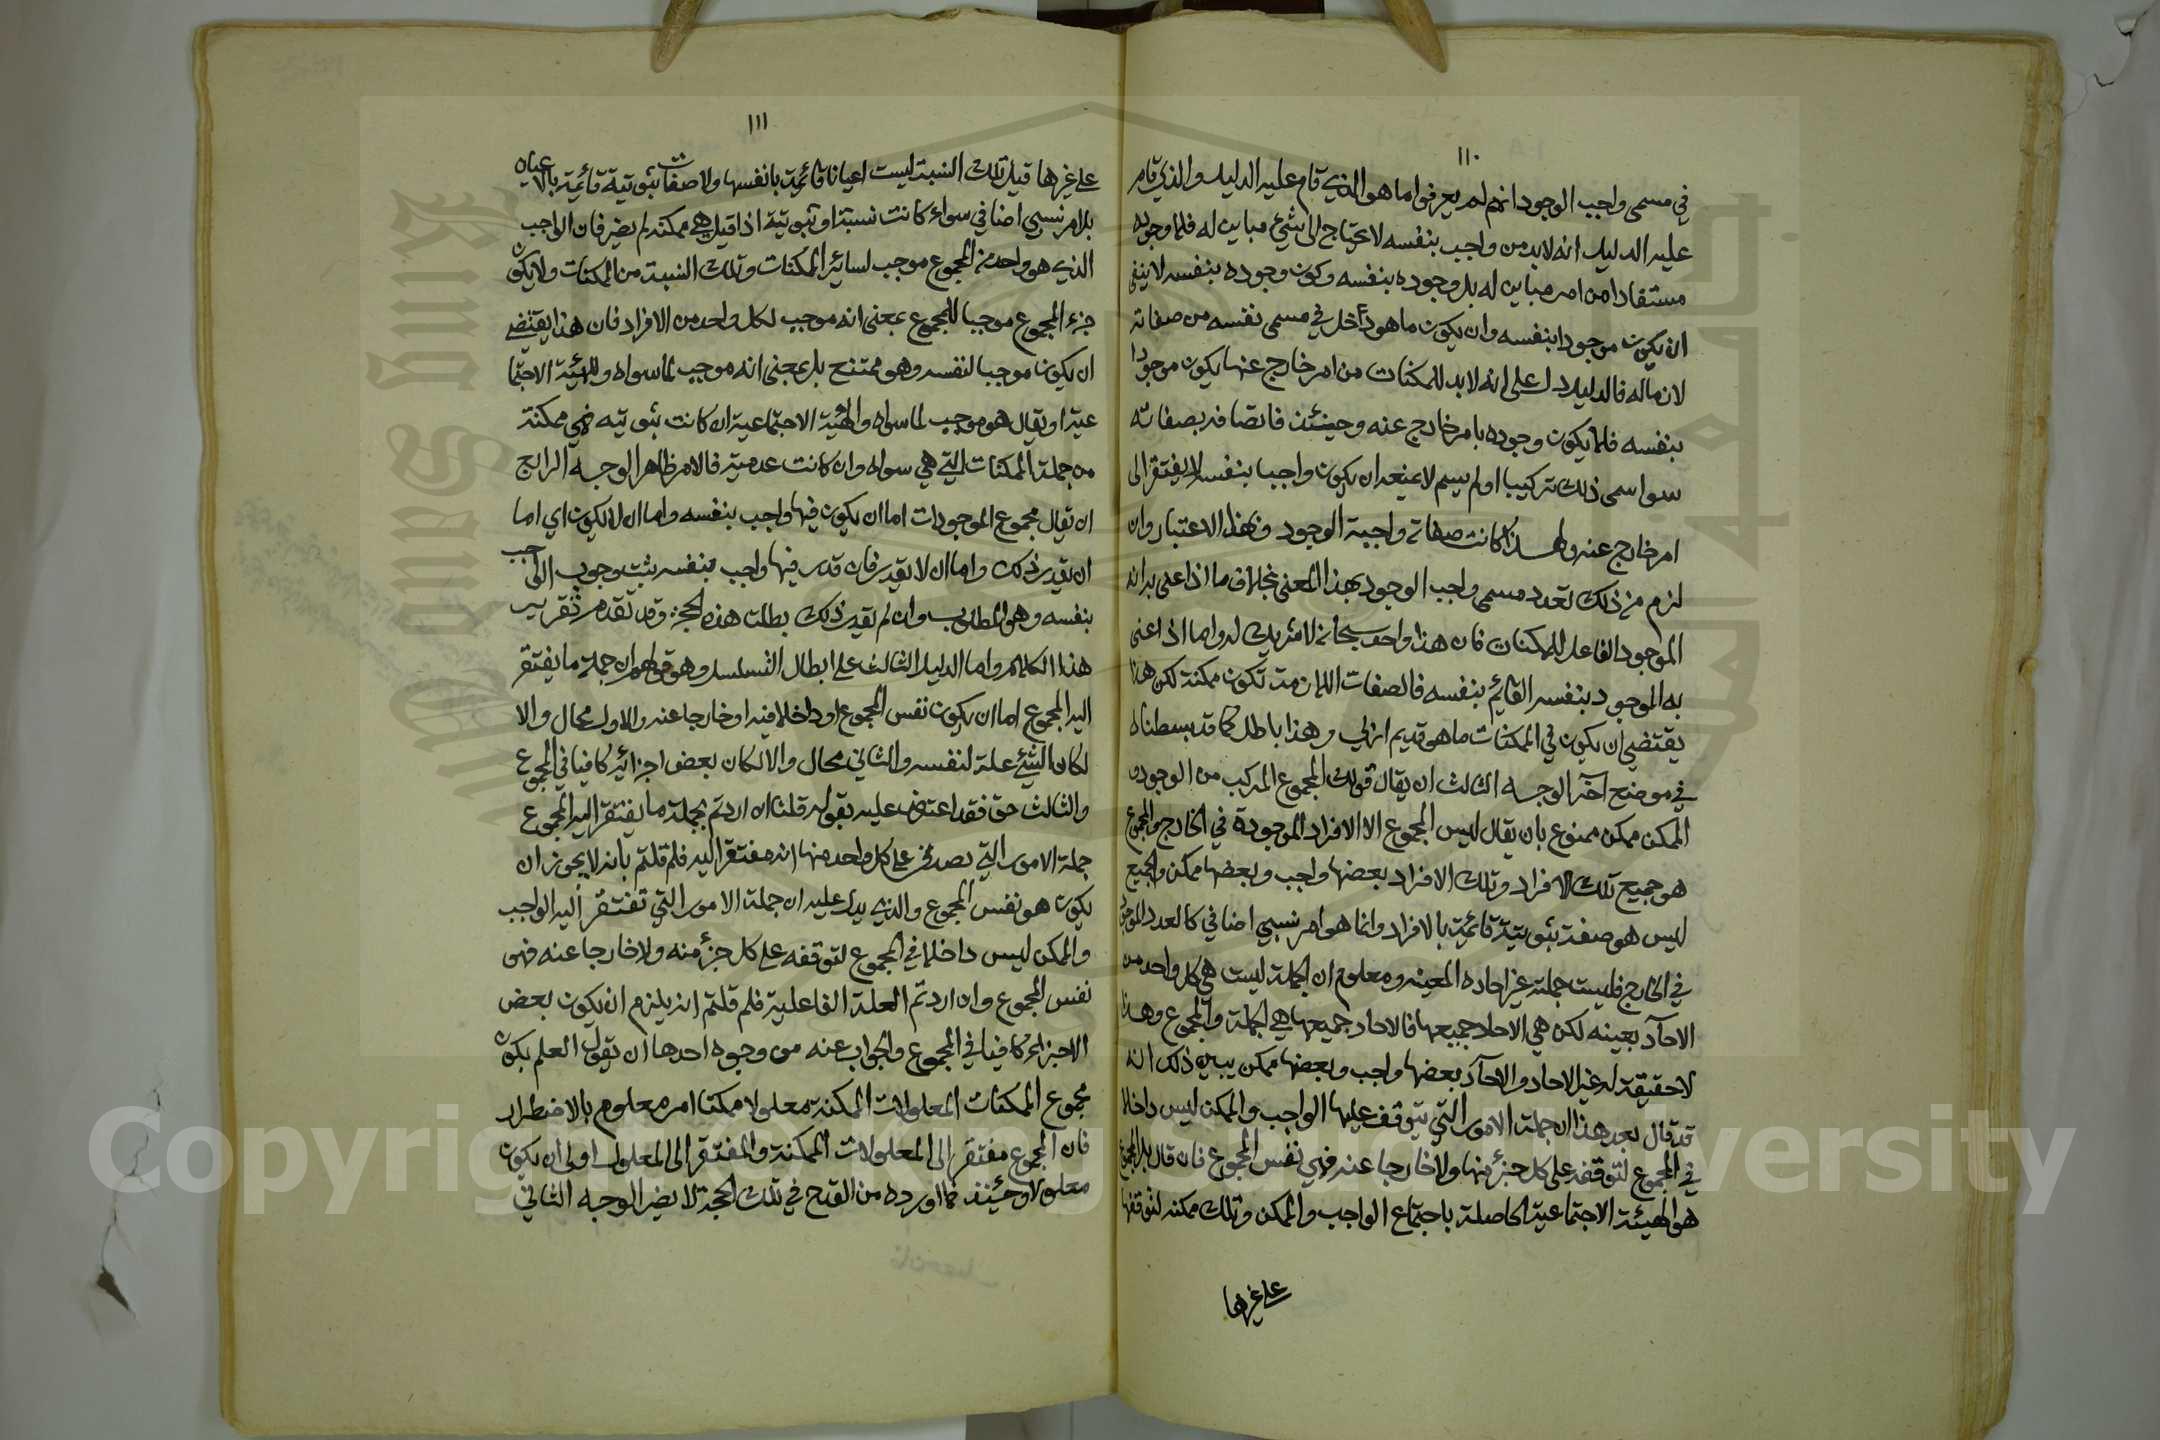 ١١٠
في مسمى واجب الوجود انهم لم يعرفوا ما هو الذي قام عليه الدليل والذي قام
عليه الدليل انه لا بد من واجب بنفسه لا يحتاج الى شيء مباين له فلا وجوده
مستفادا من امر مباين له بل وجوده بنفسه وكون وجوده بنفسه لا ينفي
ان يكون موجودا بنفسه وان يكون ما هو داخل في مسمى نفسه من صفاته
لازما له فالدليل دل على انه لا بد للممكنات من امر خارج عنها يكون موجودا
بنفسه فلا يكون وجوده بامر خارج عنه وحينئذ فاتصافه بصفاته
سوا سمى ذلك تركيبا او لم يسم لا يمنعه ان يكون واجبا بنفسه لا يفتقر الى
امر خارج عنه ولهذا كانت صفاته واجبة الوجود بهذا الاعتبار وان
لزم من ذلك تعدد مسمى واجب الوجود بهذا المعنى بخلاف ما اذا عنى به انه
الموجود الفاعل للممكنات فان هذا واحد سبحانه لا شريك له واما اذا عنى
به الموجود بنفسه القائم بنفسه فالصفات اللازمة تكون ممكنة لكن هذا
يقتضي ان يكون في الممكنات ما هو قديم ازلي وهذا باطل كما قد بسطناه
في موضع آخر الوجه الثالث ان يقال قولك المجموع المركب من الوجود و
الممكن ممكن ممنوع بان يقال ليس المجموع الا الافراد الموجودة في الخارج والمجموع
هو جميع تلك الافراد وتلك الافراد بعضها واجب وبعضها ممكن والجميع
ليس هو صفة ثبوتية قائمة بالافراد وانما هو امر نسبي اضافي كالعدد الموجود
في الخارج فليست جملته غير احاده المعينه ومعلوم ان الجملة ليست هي كل واحد من
الآحاد بعينه لكن هي الاحاد جميعها فالاحاد جميعها هي الجملة والمجموع وهذا
لا حقيقة له غير الاحاد والاحاد بعضها واجب وبعضها ممكن يبين ذلك انه
قد قال بعد هذا ان جملة الامور التي يتوقف عليها الواجب والممكن ليس داخلا
في المجموع لتوقفه على كل جزء منها ولا خارجا عنه فهي نفس المجموع فان قال بل المجموع
هو الهيئة الاجتماعية الحاصلة باجتماع الواجب والممكن وتلك ممكنه لتوقفها
على غيرها
١١١
على غيرها قيل تلك النسبة ليست اعيانا قائمة بانفسها ولا صفات ثبوتية قائمة بالاعيان
بل امر نسبي اضافي سواء كانت نسبة او ثبوتية اذا قيل هي ممكنه لم يضر فان الواجب
الذي هو واحد من المجموع موجب لسائر الممكنات وتلك النسبة من الممكنات ولا يكون
جزء المجموع موجبا للمجموع بمعنى انه موجب لكل واحد من الافراد فان هذا يقتضي
ان يكون موجبا لنفسه وهو ممتنع بل بمعنى انه موجب لما سواه وللهيئة الاجتما
عية او يقال هو موجب لما سواه والهيئة الاجتماعية ان كانت ثبوتيه فهي ممكنة
من جملة الممكنات التي هي سواه وان كانت عدمية فالامر ظاهر الوجه الرابع
ان يقال مجموع الموجودات اما ان يكون فيها واجب بنفسه واما ان لا يكون اي اما
ان يقدر ذلك واما ان لا يقدر فان قدر فيها واجب بنفسه ثبت وجوب الواجب
بنفسه وهو المطلوب وان لم يقدر ذلك بطلت هذه الحجة وقد تقدم تقرير
هذا الكلام واما الدليل الثالث على ابطال التسلسل وهو قولهم ان جملة ما يفتقر
اليه المجموع اما ان يكون نفس المجموع او داخلا فيه او خارجا عنه والاول محال والا
لكان الشيء علة لنفسه والثاني محال والا لكان بعض اجزائه كافيا في المجموع
والثالث حق فقد اعترض عليه بقوله قلنا ان اردتم بجملة ما يفتقر اليه المجموع
جملة الامور التي يصدق على كل واحد منها انه مفتقر اليه فلم قلتم بانه لا يجوز ان
يكون هو نفس المجموع والذي يدل عليه ان جملة الامور التي تفتقر اليه الواجب
والممكن ليس داخلا في المجموع لتوقفه على كل جزء منه ولا خارجا عنه فهو
نفس المجموع وان اردتم العلة الفاعلية فلم قلتم انه يلزم ان يكون بعض
الاجزاء كافيا في المجموع والجواب عنه من وجوه احدها ان يقول العلم بكون
مجموع الممكنات المعلولات الممكنة معلولا ممكنا امر معلوم بالاضطرار
فان المجموع مفتقر الى المعلولات الممكنة والمفتقر الى المعلول اولى ان يكون
معلولا وحينئذ فما اورده من القدح في تلك الحجة لا يضر الوجه الثاني
Copyright © King Saud University